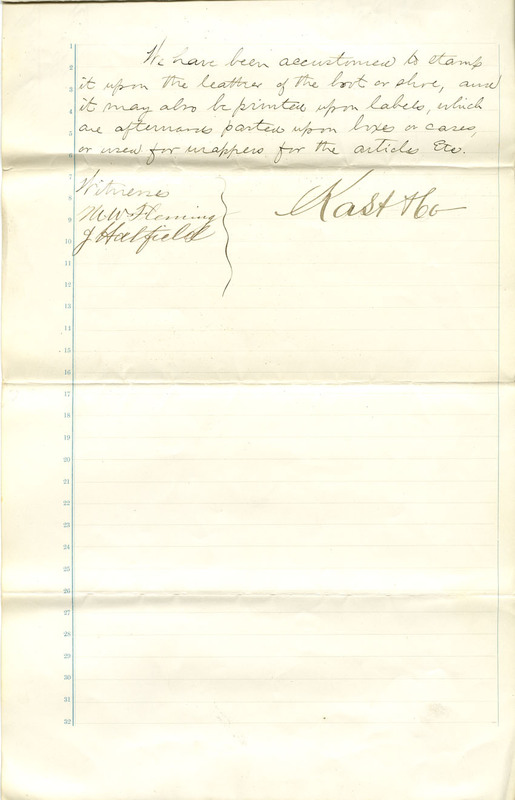 1
2 We have been accustomed to stamp
3 it upon the leather of the boot or shoe, and
4 it may also be printed upon labels, which
5 are afterwards pasted upon boxes or cases,
6 or used for wrappers for the article Etc.
7
8 Witness
9 M. W. Fleming Kast & Co
10 J Hatfield
11
12
13
14
15
16
17
18
19
20
21
22
23
24
25
26
27
28
29
30
31
32